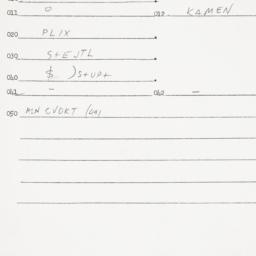 011 0 012 KAMEN
020 PLIX
030 S+EJTL
040 $ ) S+UP+
041 - 042 -
050 MN CVDKT